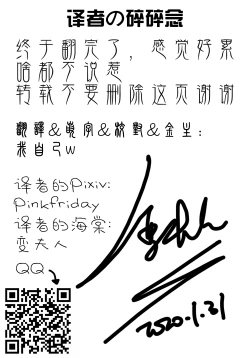 译者の碎碎念
终于翻完了，感觉好累
啥都不说惹
转载不要删除这页谢谢
翻譯&嵌字&校對&金主:
我自己w
译者的Pixiv:
Pinkfriday
译者的海棠:
变夫人
QQ
2020.1.31